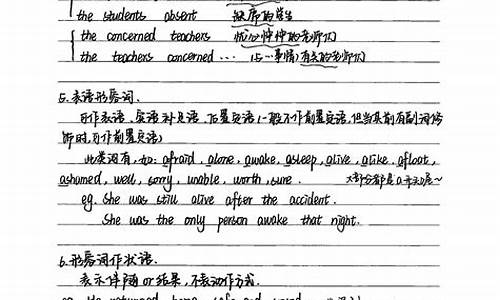 the students absent 缺席的学生
the concerned teachers 忧心忡忡的老师们
the teachers concerned ... (与…事情)有关的老师们
5. 表语形容词.
可作表语、宾语补足语、后置定语(一般不作前置定语,但当其前有副词修
饰时,可作前置定语)
此类词有,如: afraid, alone, awake, asleep, alive, alike, afloat,
ashamed, well, sorry, unable, worth, sure. 大部分都是a开头哒~
eg. She was still alive after the accident.
She was the only person awake that night.
6. 形容词作状语.
表示伴随or结果,不表动作方式.
eg. He returned home, safe and